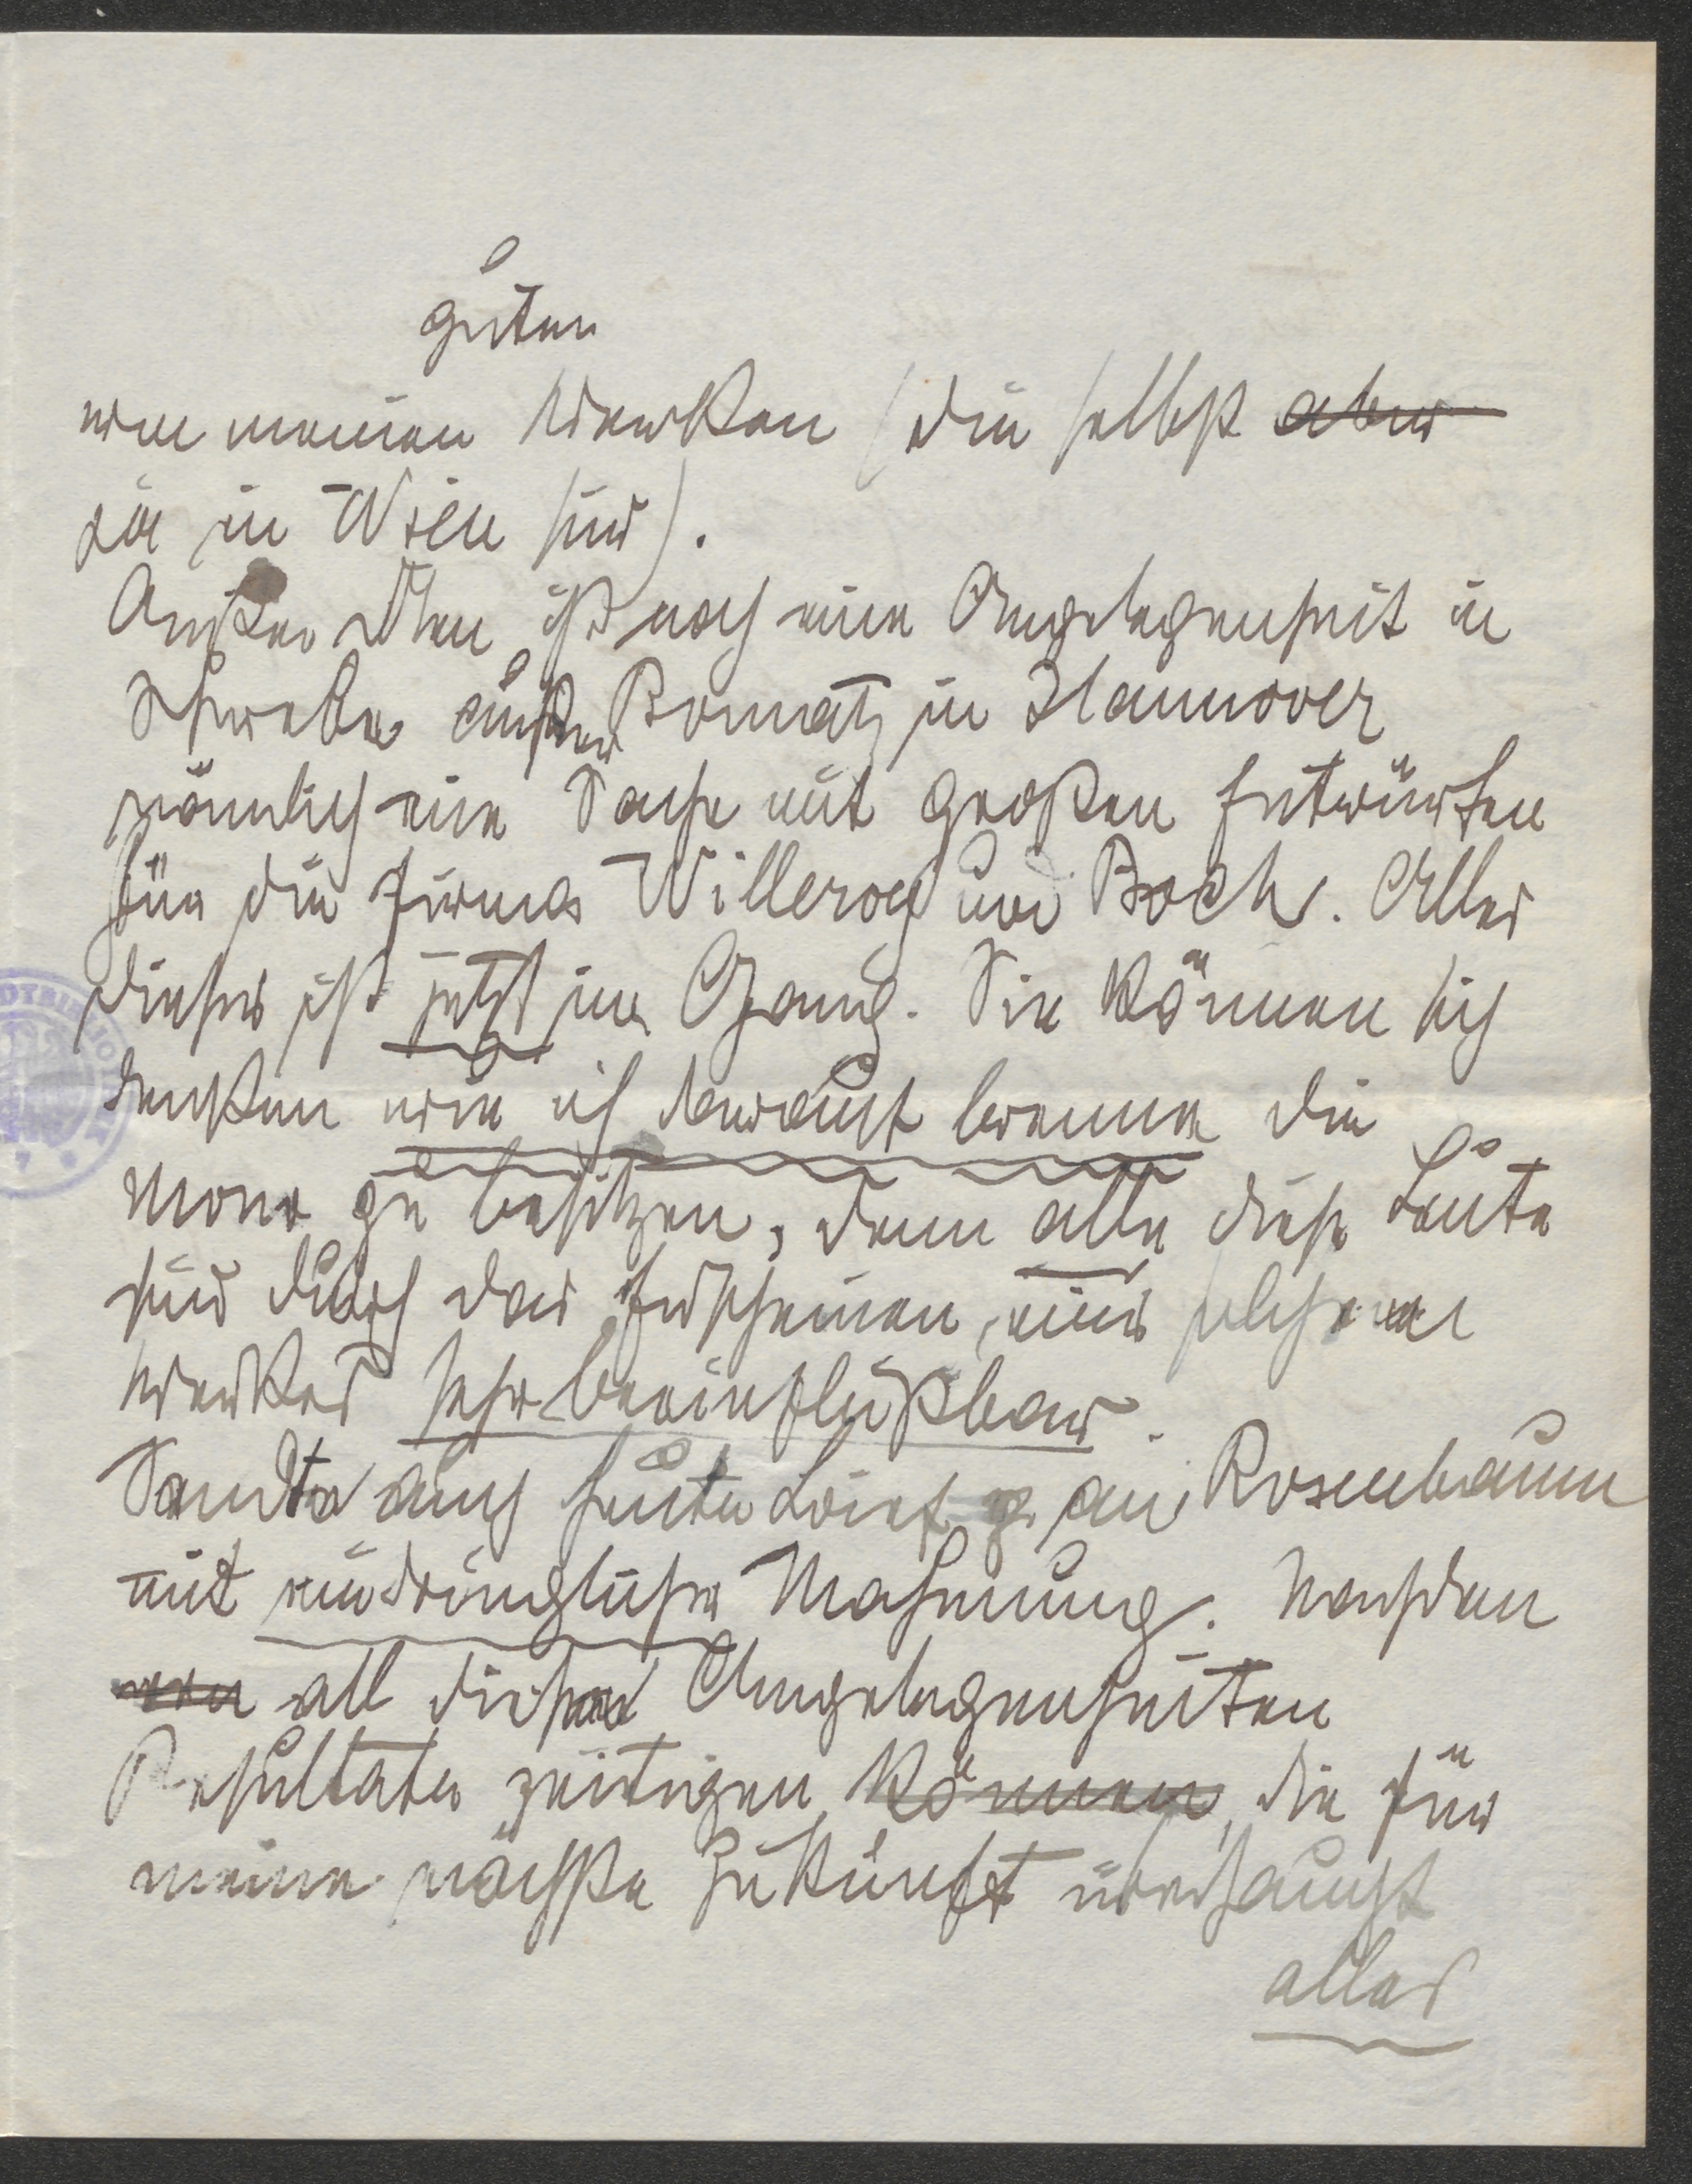 guten
von meinen Werken (die selbst aber
ja in Wien sind).
Außerdem ist noch eine Angelegenheit in
Schwebe außer Bornatz in Hannover
nämlich eine Sache mit großen Entwürfen
für die Firma Willeroy und Boch. Alles
dieses ist jetzt im Gang. Sie können sich
denken wie ich darauf brenne die
Mono zu besitzen, denn alle diese Leute
sind durch das Erscheinen eines solchen
Werkes sehr beeinflußbar.
Sandte auch heute Brief an Rosenbaum
mit eindringlicher Mahnung. Nachdem
von all diesen Angelegenheiten
Resultate zeitigen können, die für
meine nächste Zukunft überhaupt
alles